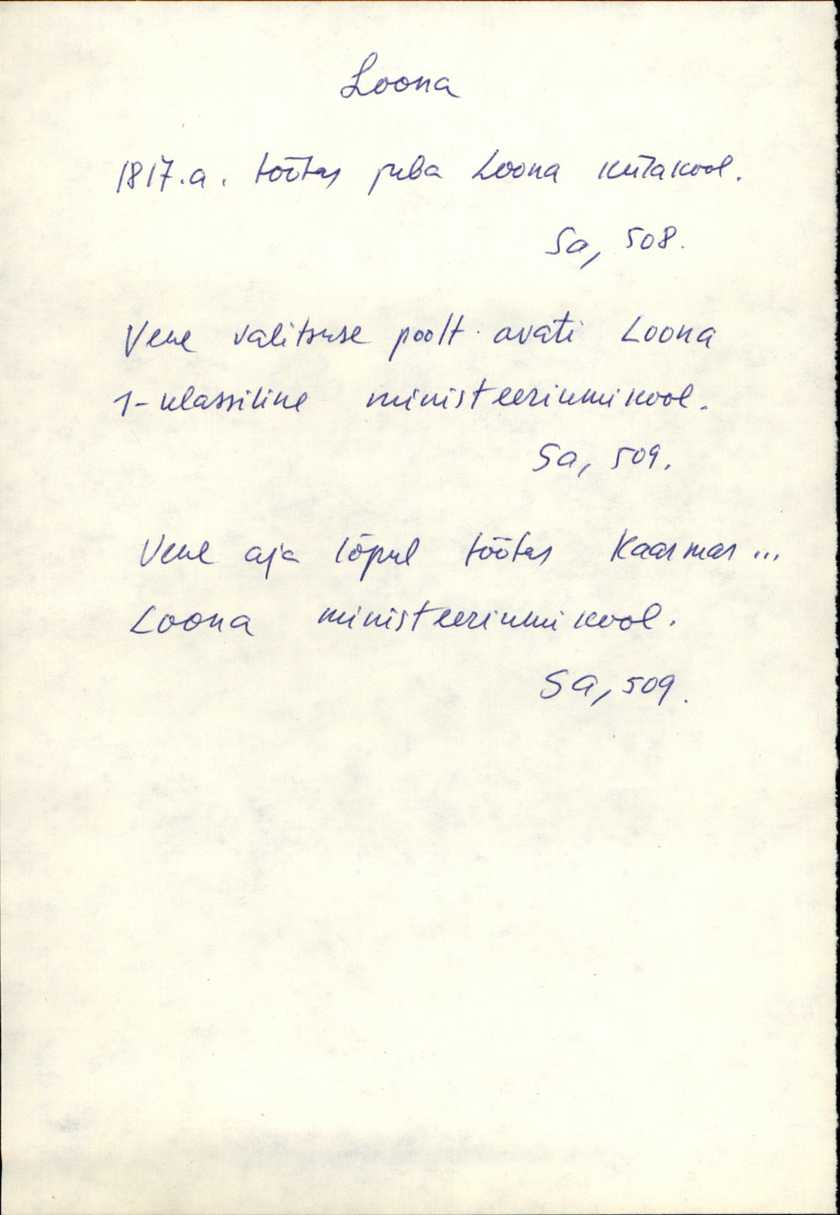 Loona
1817.a. töötas juba Loona külakool.
Sa, 508.
Vene valitsuse poolt avati Loona
1-klassiline ministeeriumikool.
Sa, 509.
Vene aja lõpul töötas Kaarmas ...
Loona ministeeriumikool.
Sa, 509.